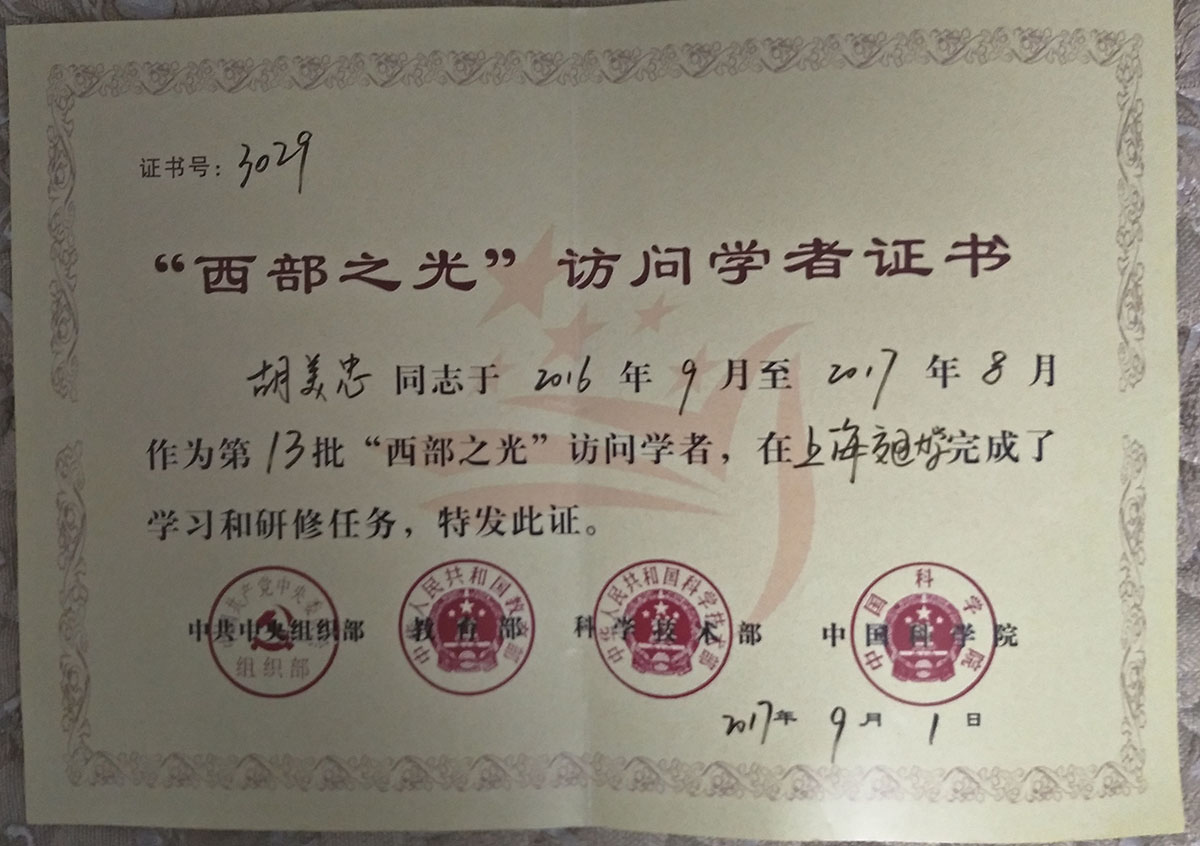 证书号：3029
“西部之光”访问学者证书
胡美忠 同志于 2016 年 9 月至 2017 年 8 月
作为第 13 批“西部之光”访问学者，在上海交通大学完成了
学习和研修任务，特发此证。
中共中央组织部 教育部 科学技术部 中国科学院
组织部
中华人民共和国教育部
中华人民共和国科学技术部
中国科学院
2017年 9月 1日